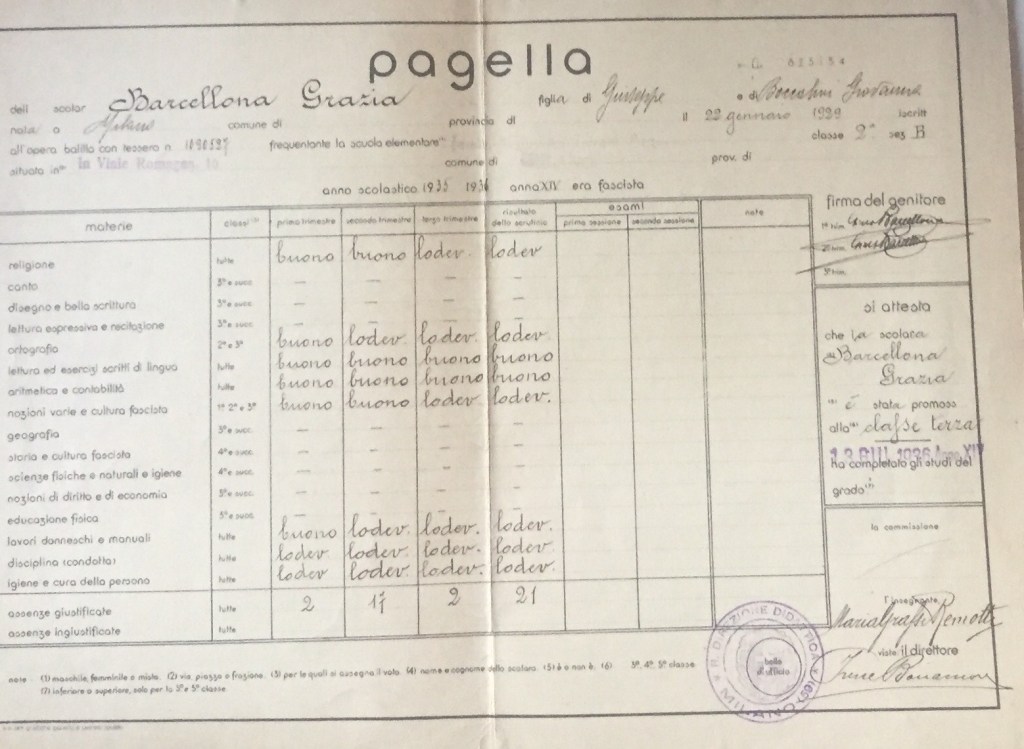 pagella
dell scolar Barcellona Grazia figlia di Giuseppe e di Giovanna
nata a Milano comune di provincia di il 22 gennaio 1929 iscritt
all'opera balilla con tessera n frequentante la scuola elementare classe 2ª sez B
situata in in Viale Romagna, comune di prov. di
anno scolastico 1935 1936 anno XIV era fascista
materie classi (3) primo trimestre secondo trimestre terzo trimestre risultato dello scrutinio esami prima sessione seconda sessione note
religione tutte buono buono lodev. lodev
canto 3ª e succ. — — — —
disegno e bella scrittura 3ª e succ. — — — —
lettura espressiva e recitazione 3ª e succ. — — — —
ortografia 2ª e 3ª buono lodev. lodev. lodev.
lettura ed esercizi scritti di lingua tutte buono buono buono buono
aritmetica e contabilità tutte buono buono buono buono
nozioni varie e cultura fascista 1ª 2ª e 3ª buono buono lodev. lodev.
geografia 3ª e succ. — — — —
storia e cultura fascista 4ª e succ. — — — —
scienze fisiche e naturali e igiene 4ª e succ. — — — —
nozioni di diritto e di economia 5ª e succ. — — — —
educazione fisica 5ª e succ. — — — —
lavori donneschi e manuali tutte buono lodev. lodev. lodev.
disciplina (condotta) tutte lodev lodev. lodev. lodev.
igiene e cura della persona tutte lodev lodev. lodev. lodev.
assenze giustificate tutte 2 17 2 21
assenze ingiustificate tutte
firma del genitore
1º trim. Barcellona
2º trim.
3º trim.
si attesta
che la scolara
Barcellona
Grazia
(5) è stata promoss
alla (6) classe terza
GIU. 1936 Anno XIV
ha completato gli studi del
grado (7)
la commissione
l'insegnante
Maria
visto il direttore
R. DIREZIONE DIDATTICA
MILANO (59)
bollo
di ufficio
note (1) maschile, femminile o mista. (2) via, piazza o frazione. (3) per le quali si assegna il voto. (4) nome e cognome dello scolaro. (5) è o non è. (6) 3ª, 4ª, 5ª classe.
(7) inferiore o superiore, solo per la 3ª e 5ª classe